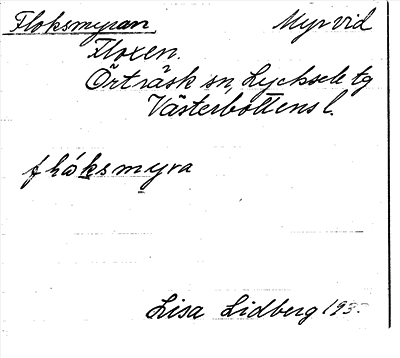 Floksmyran Myr vid
Floxen.
Örträsk sn, Lycksele tg
Västerbottens l.
flåksmyra
Lisa Lidberg 193